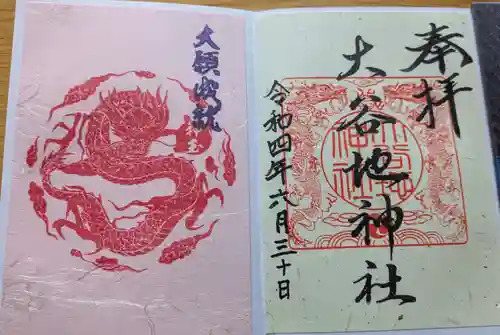 奉拝
大谷地神社
令和四年六月三十日
大願成就